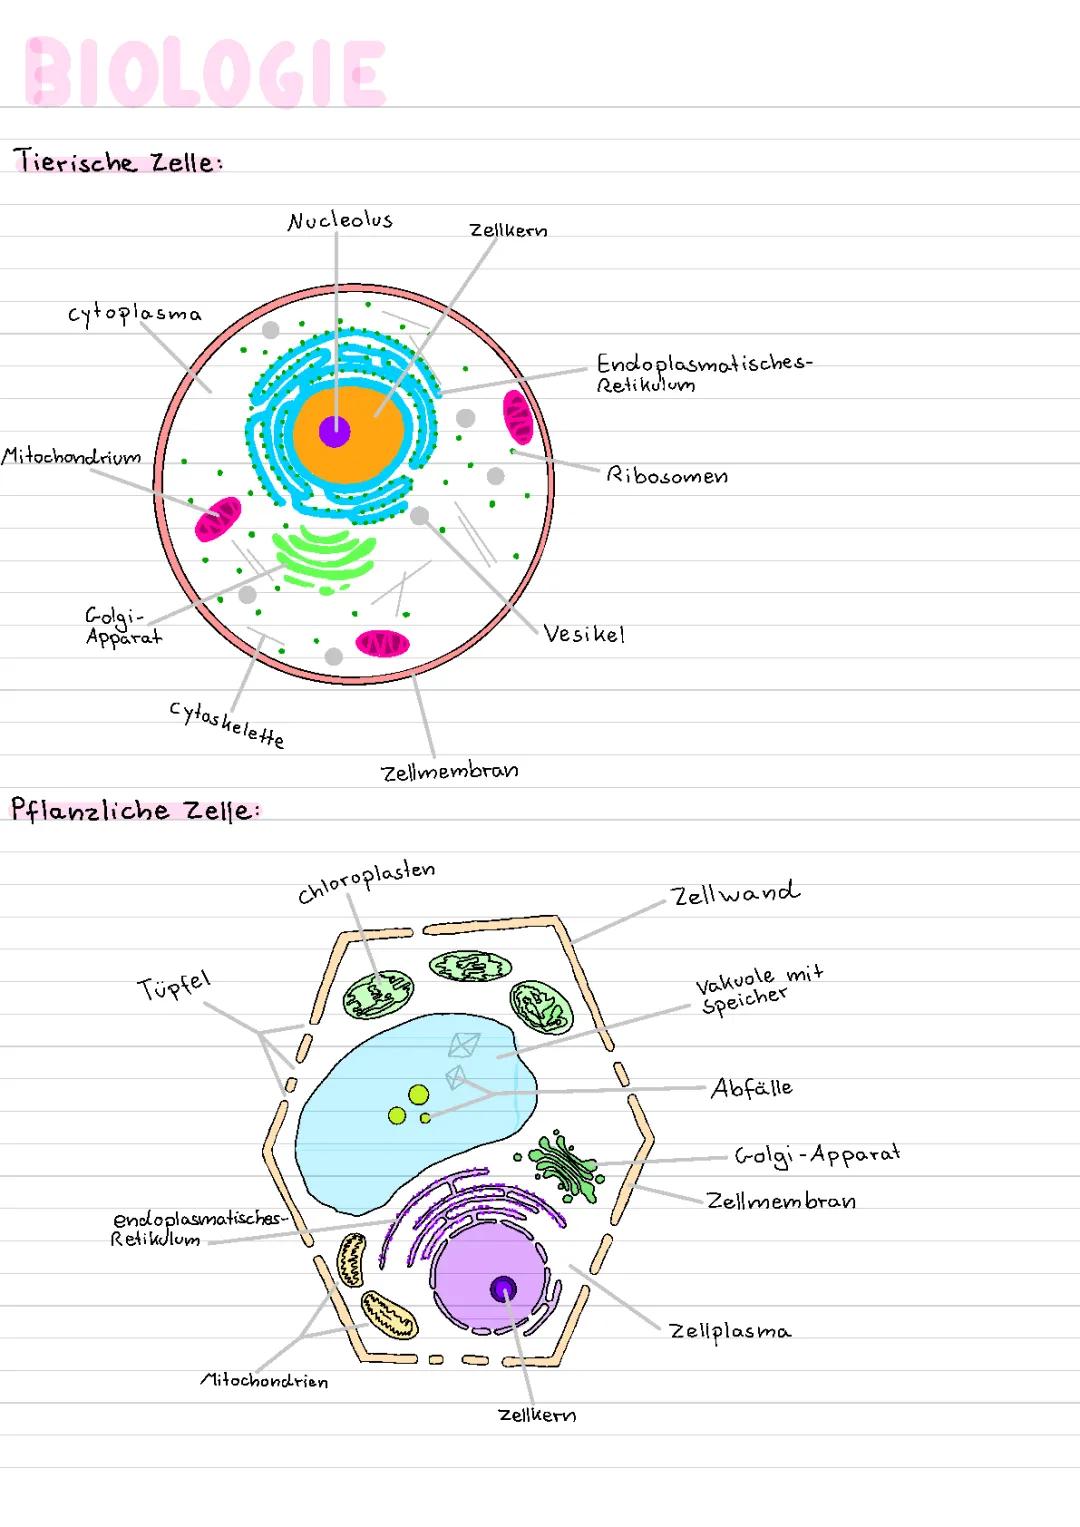 BIOLOGIE
Tierische Zelle:
Nucleolus
Zellkern
Cytoplasma
Endoplasmatisches-
Retikulum
Mitochondrium
Ribosomen
Golgi-
Apparat
Vesikel
Cytoskelette
Zellmembran
Pflanzliche Zelle:
Chloroplasten
Zellwand
Tüpfel
Vakuole mit
Speicher
Abfälle
Golgi-Apparat
Zellmembran
endoplasmatisches-
Retikulum
Zellplasma
Mitochondrien
Zellkern